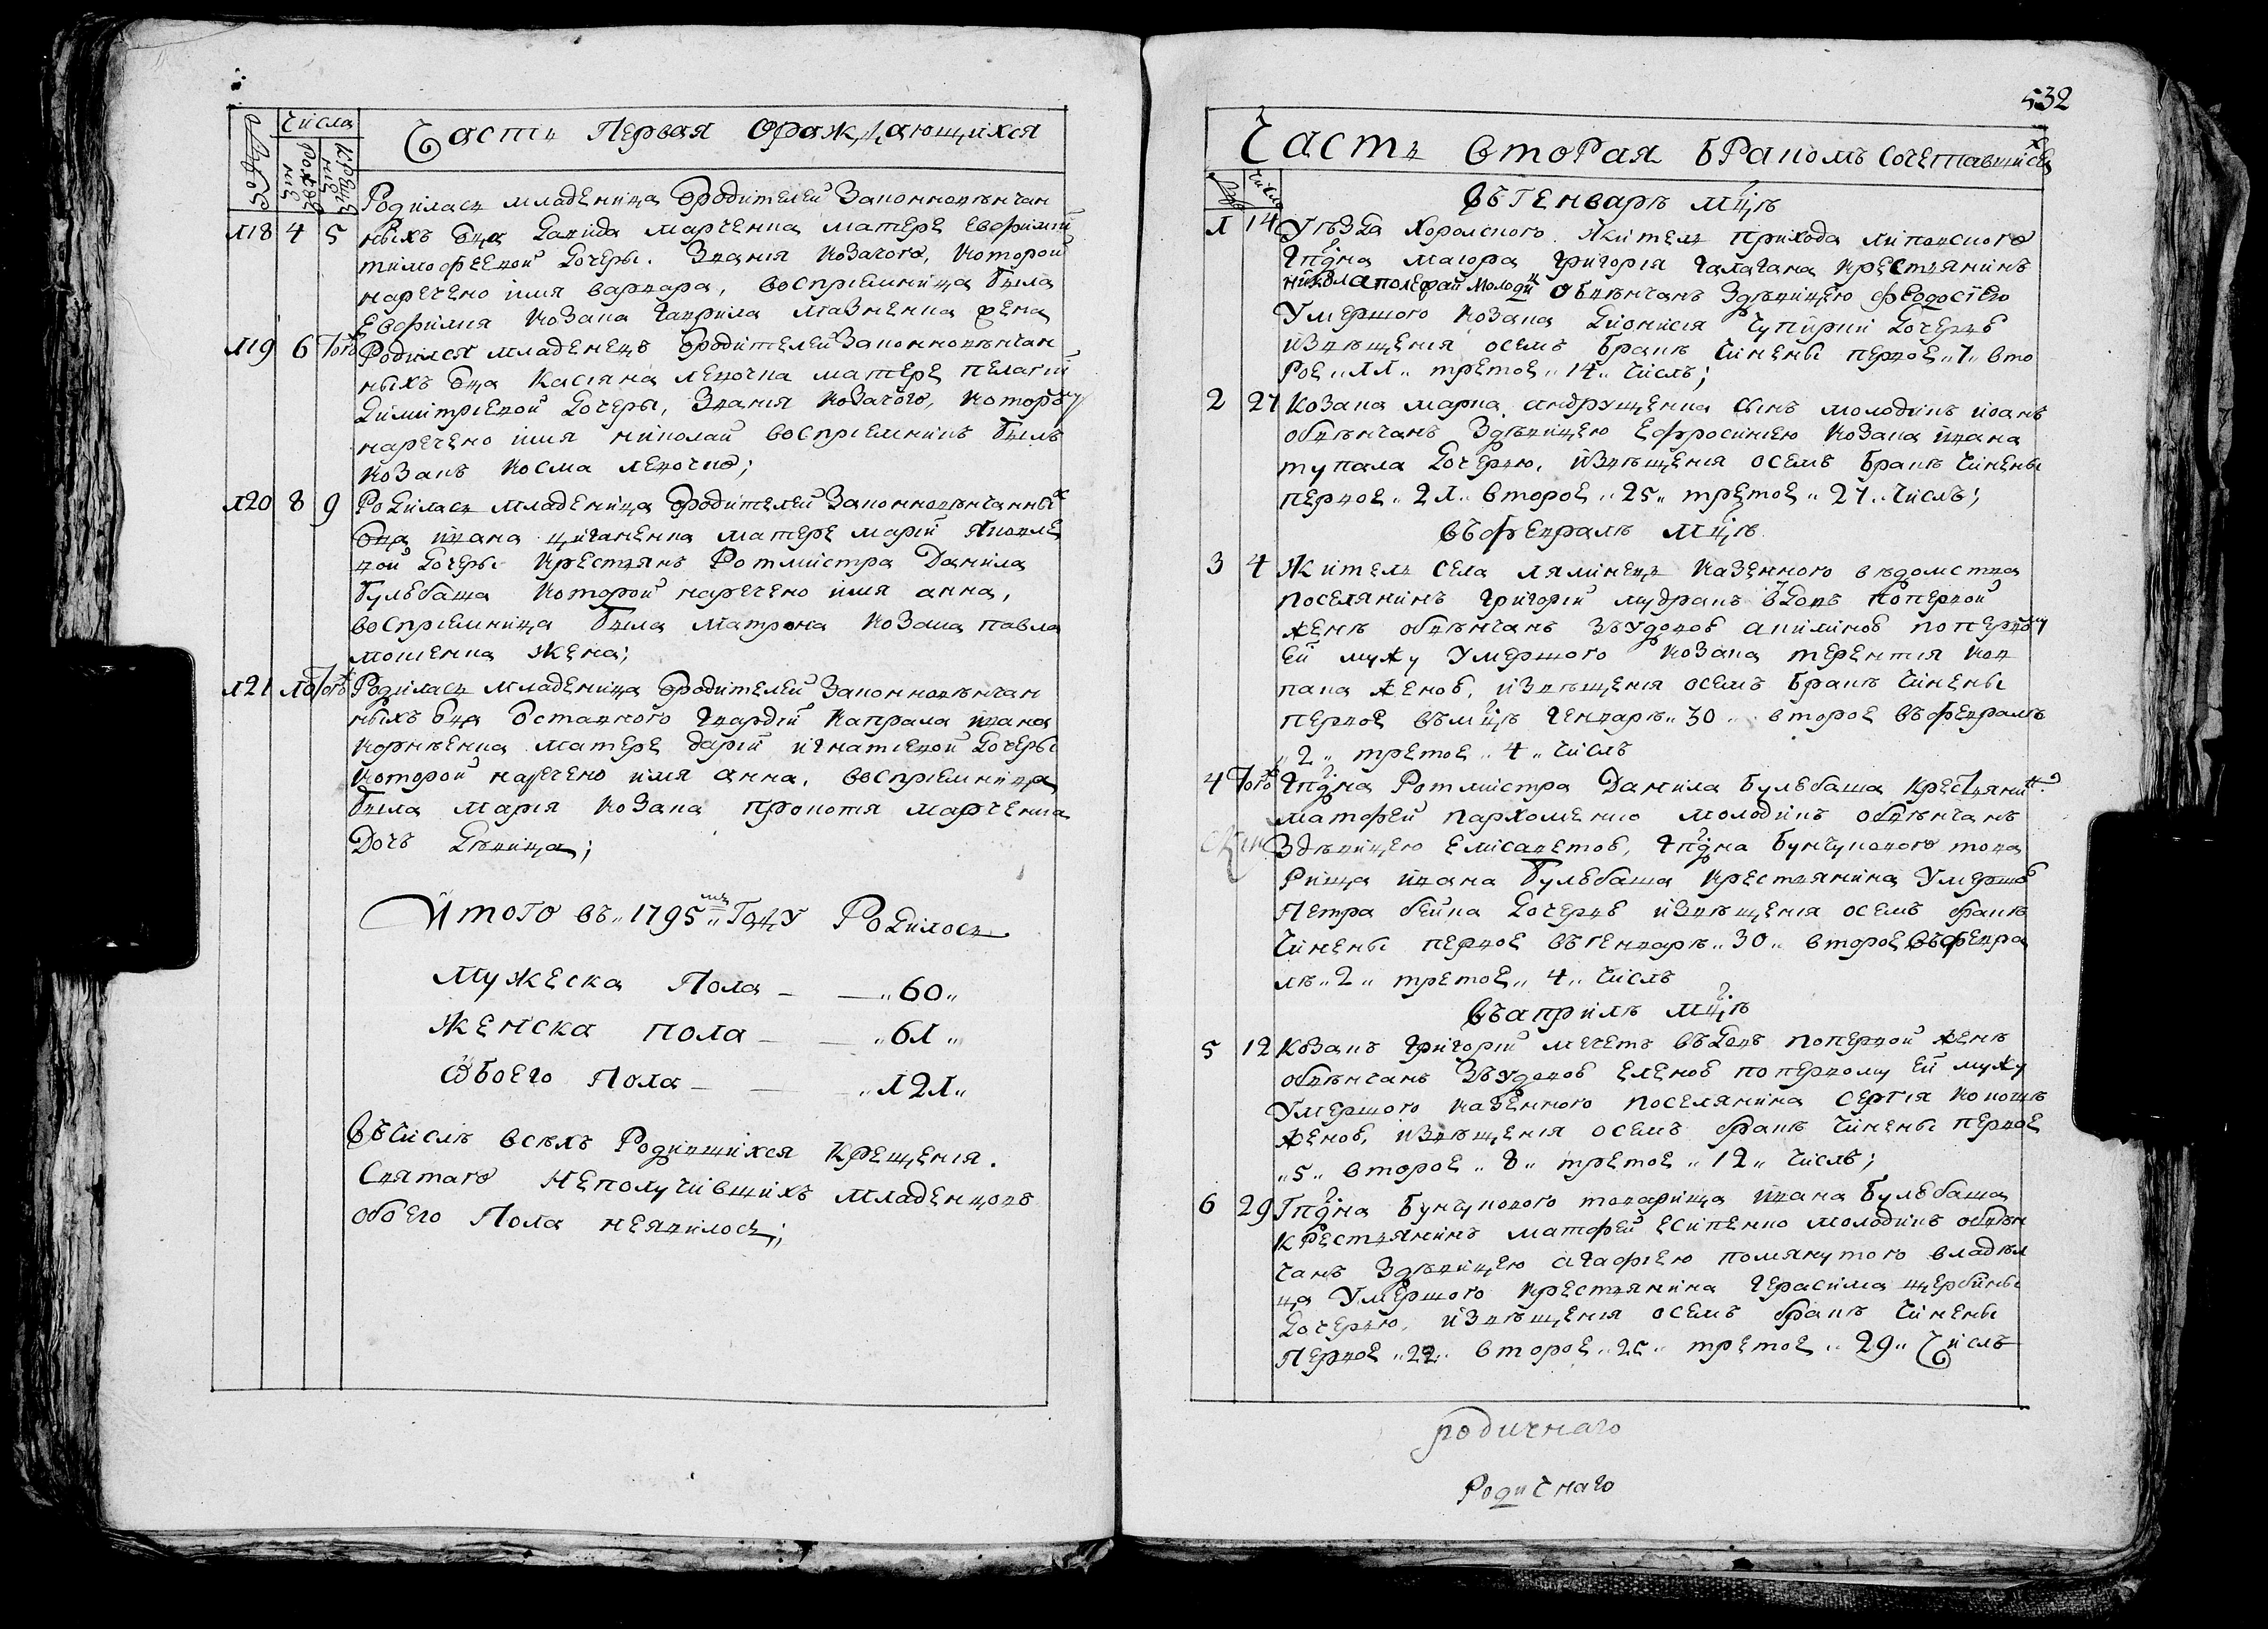 Числа
Часть Первая ораждающихся
Родилась младеница ѿродителей Законновѣнчан
118 4 5 ныхъ ѿца Давида Марченка матере Евфимій
тимофеевой дочеры. Званія козачого, которой
наречено имя варвара, воспріемница была
Евфимія козака Гаврила Мазненка жена
119 6 Того Родился младенецъ ѿродителей Законновѣнчан
ныхъ ѿца Касіяна левочка матере пелагій
димитріевой дочеры, Званія козачого, которому
наречено имя николай воспріемникъ былъ
козакъ косма левочко;
120 8 9 Родилась младеница ѿродителей Законновѣнчанныхъ
ѿца ивана циганенка матере марій яковле
вой дочеры крестьянъ Ротмистра Данила
бульбаша которой наречено имя анна,
воспріемница была матрона козака павла
мошенка жена;
121 10 Тогожъ Родилась младеница ѿродителей Законновѣнчан
ныхъ ѿца ѿставного гвардій капрала ивана
корнѣенка матере дарій игнатіевой дочеры
которой наречено имя анна, воспріемница
была марія козака прокопія марченка
дочь дѣвица;
Итого въ „1795„ мъ Году Родилось
Мужеска Пола — — „60„
Женска пола — — „61„
Обоего Пола — — „121„
Въчислѣ всѣхъ Родившихся крещенія
святаго неполучившихъ младенцовъ
обоего Пола неявилось;
532
Часть вторая бракомъ сочетавшихся
число
въГенварѣ мцѣ
1 14 Уѣзда Хоролского жителъ прихода липовского
Гпдна маіора григорія галагана крестьянинъ
николаполерай молодий обвѣнчанъ Здѣвицею феодосіею
Умершого козака діонисія чупирки дочерю
извѣщенія осемъ бракѣ чинены первое „7„ вто
рое „11„ третое „14„ числъ;
2 27 козака марка андрущенка сынъ молодикъ иоанъ
обвѣнчанъ Здѣвицею Ефросиніею козака ивана
тупала дочерю, извѣщенія осемъ бракѣ чинены
первое „21„ второе „25„ третое „27„ числъ;
въфевралѣ мцѣ
3 4 жителъ села ляминець казенного вѣдомства
поселянинъ григорій мудракъ вдовъ поперво
женѣ обвѣнчанъ зъудовою акилиною попервому
ей мужу умершого козака терентія ков
пака женою, извѣщенія осемъ бракѣ чинены
первое въмцѣ генварѣ „30„ второе въфевралѣ
„2„ третое „4„ числъ
4 Тогожъ Гпдна Ротмистра Данила бульбаша крестьянинъ
матфей пархоменко молодикъ обвѣнчанъ
Здѣвицею елисаветою, гпдна бунчукового това
рища ивана бульбаша крестьянина умершого
Петра бейка дочерю извѣщенія осемъ бракѣ
чинены первое вѣгенварѣ „30„ второе въфевра
лѣ „2„ третое „4„ числъ
въаприлѣ мцѣ
5 12 козакъ григорій мечетъ въдовъ попервой женѣ
обвѣнчанъ Зъудовою еленою попервому ей мужу
умершого казенного поселянина сергія
женою, извѣщенія осемъ бракѣ чинены первое
„5„ второе „8„ третое „12„ числъ;
6 29 Гпдна бунчукового товарища ивана бульбаша
крестьянинъ матфей есипенко молодикъ обвѣн
чанъ Здѣвицею агафіею помянутого владѣл
ца умершого крестьянина герасима щербины
дочерю, извѣщенія осемъ бракѣ чинены
первое „22„ второе „25„ третое „29„ числъ
родичнаго
Родичнаго